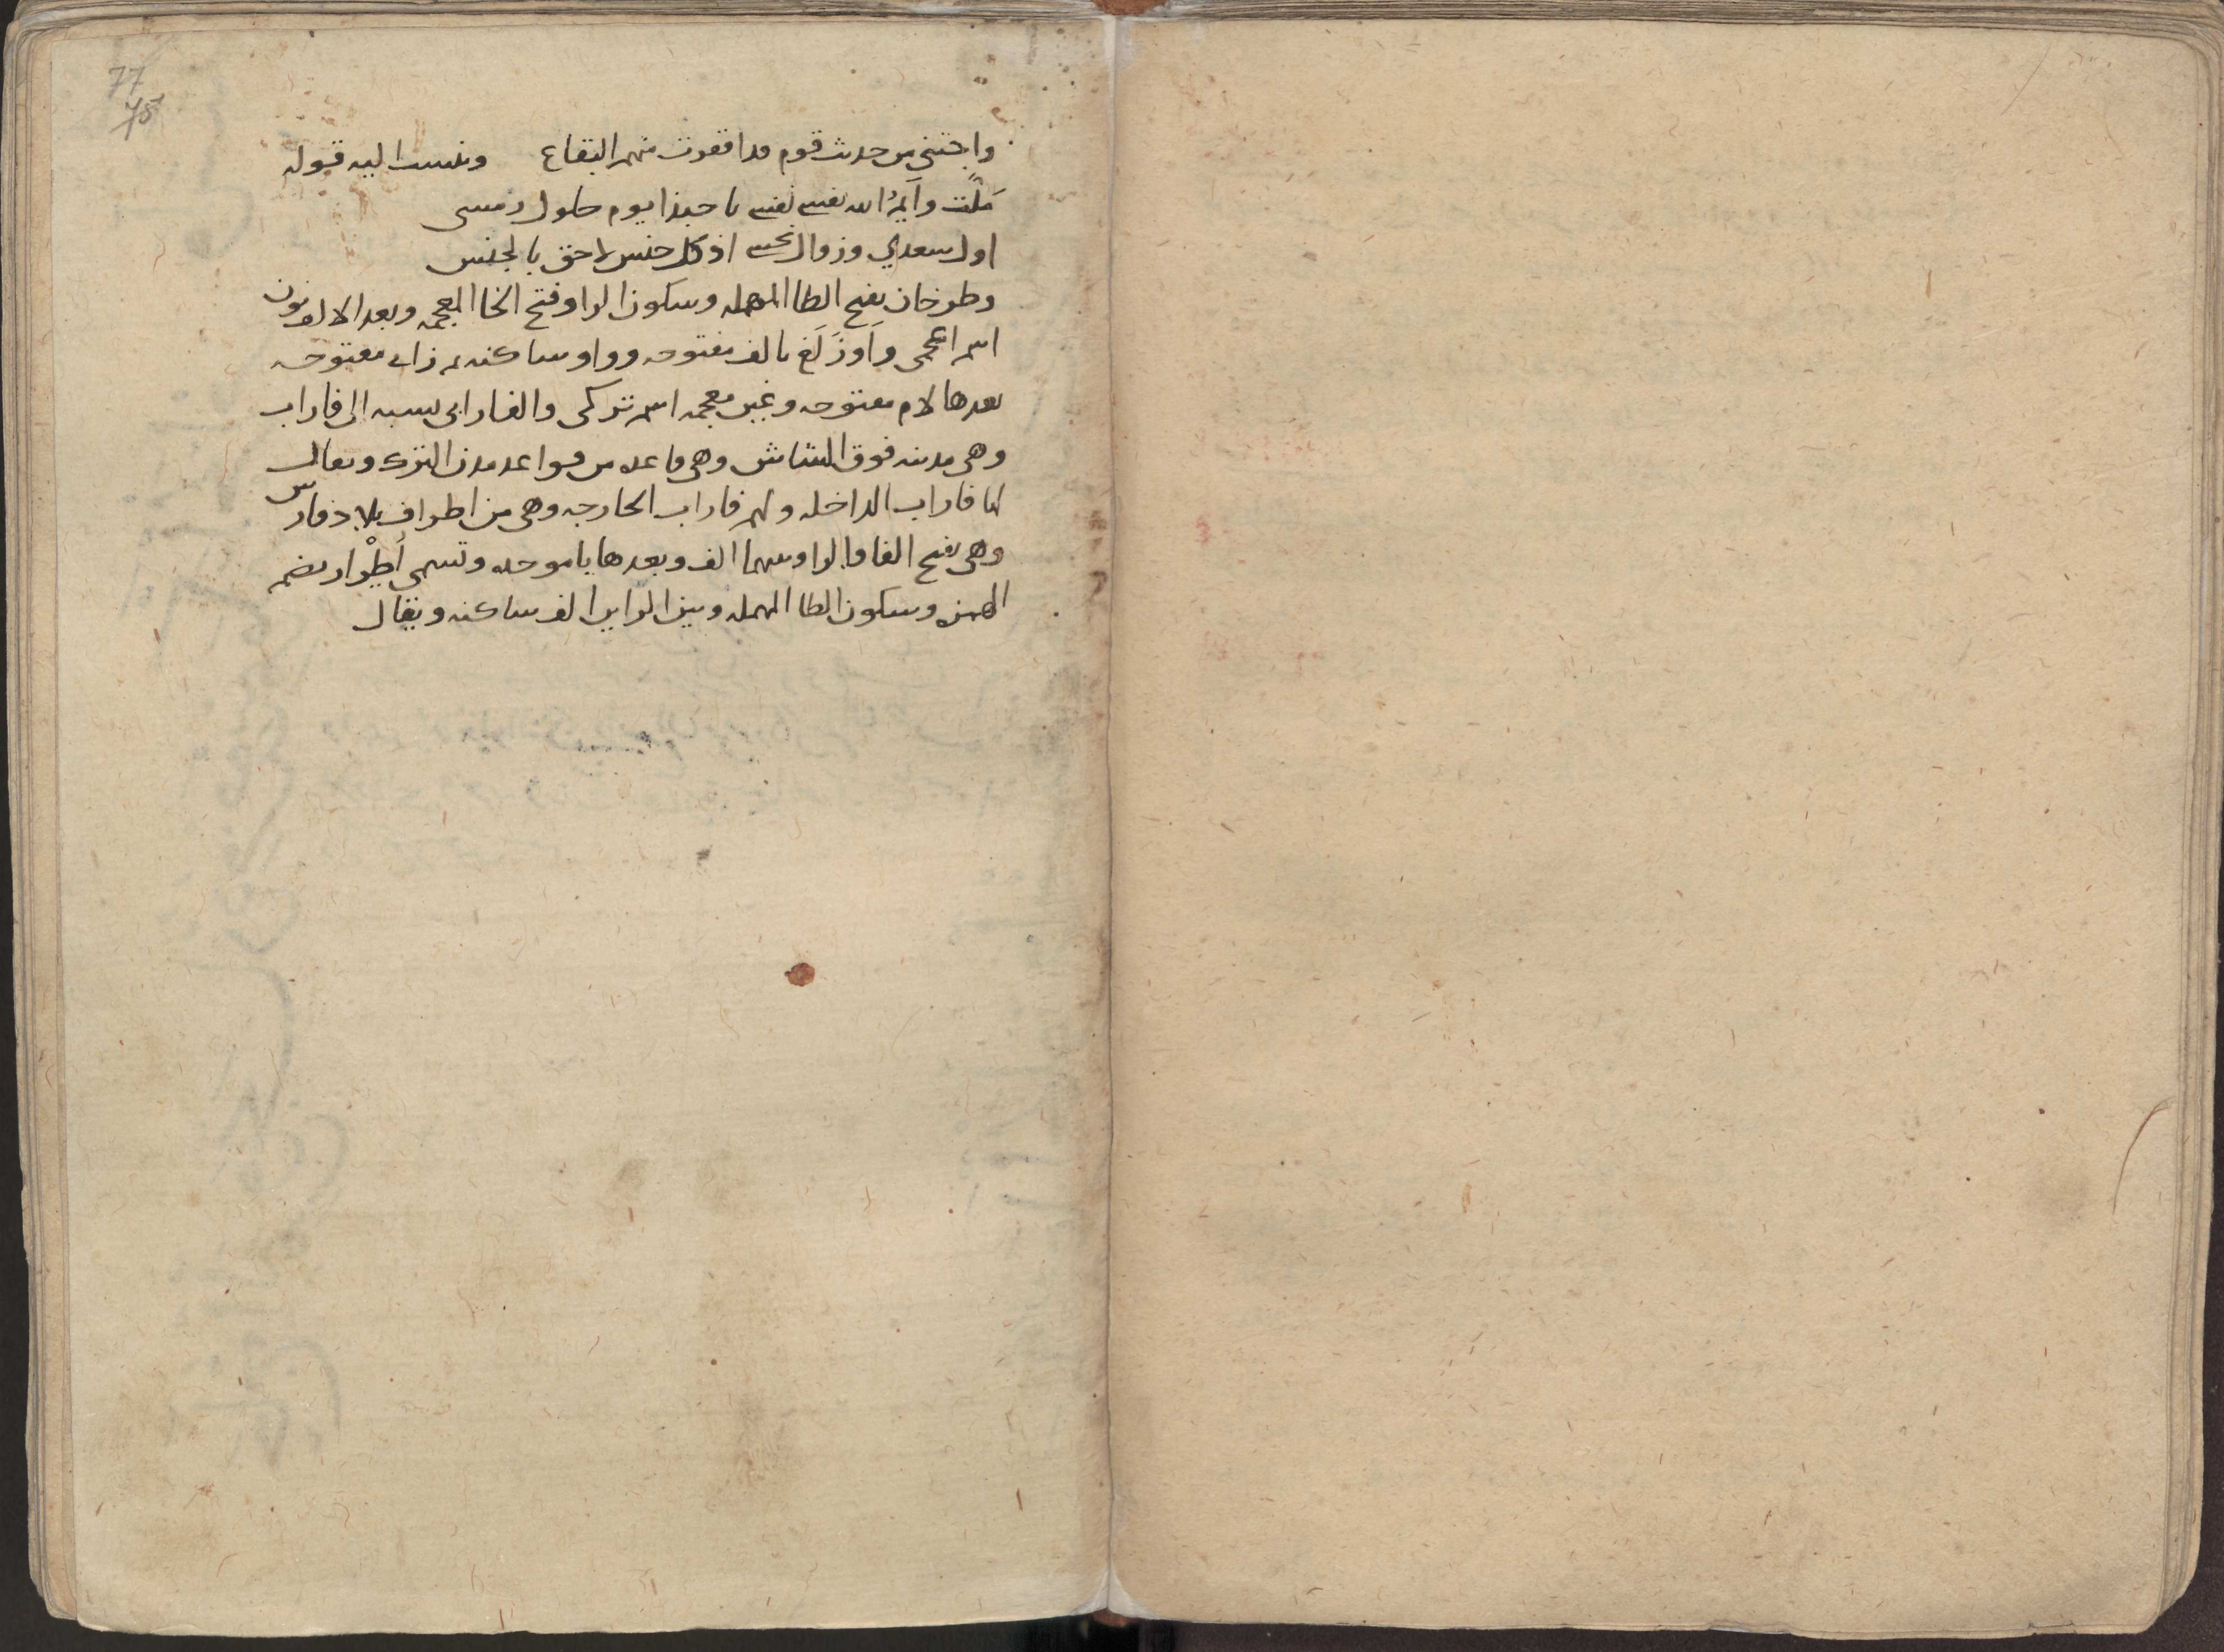 77
78
واجتنى من حديث قوم قد اقفرت منهم البقاع ونسب اليه قوله
ملّت وأيمُ الله نفسى نفسى يا حبذا يوم حلول رمسى
اول سعدي وزوال نحسى اذ كل جنس لاحق بالجنس
وطرخان بفتح الطا المهمله وسكون الرا وفتح الخا المعجمه وبعد الالف نون
اسم اعجمى وَاَوزَلَغ بالف مفتوحه وواو ساكنه ثم زاى مفتوحه
بعدها لام مفتوحه وغين معجمه اسم تركى والفارابى نسبه الى فاراب
وهى مدينه فوق الشاش وهى قاعده من قواعد مدن الترك ويقال
لها فاراب الداخله ولهم فاراب الخارجه وهى من اطراف بلاد فارس
وهى بفتح الفا والرا وبينهما الف وبعدها با موحده وتسمى أُطْرار بضم
الهمزه وسكون الطا المهمله وبين الرايين الف ساكنه ويقال